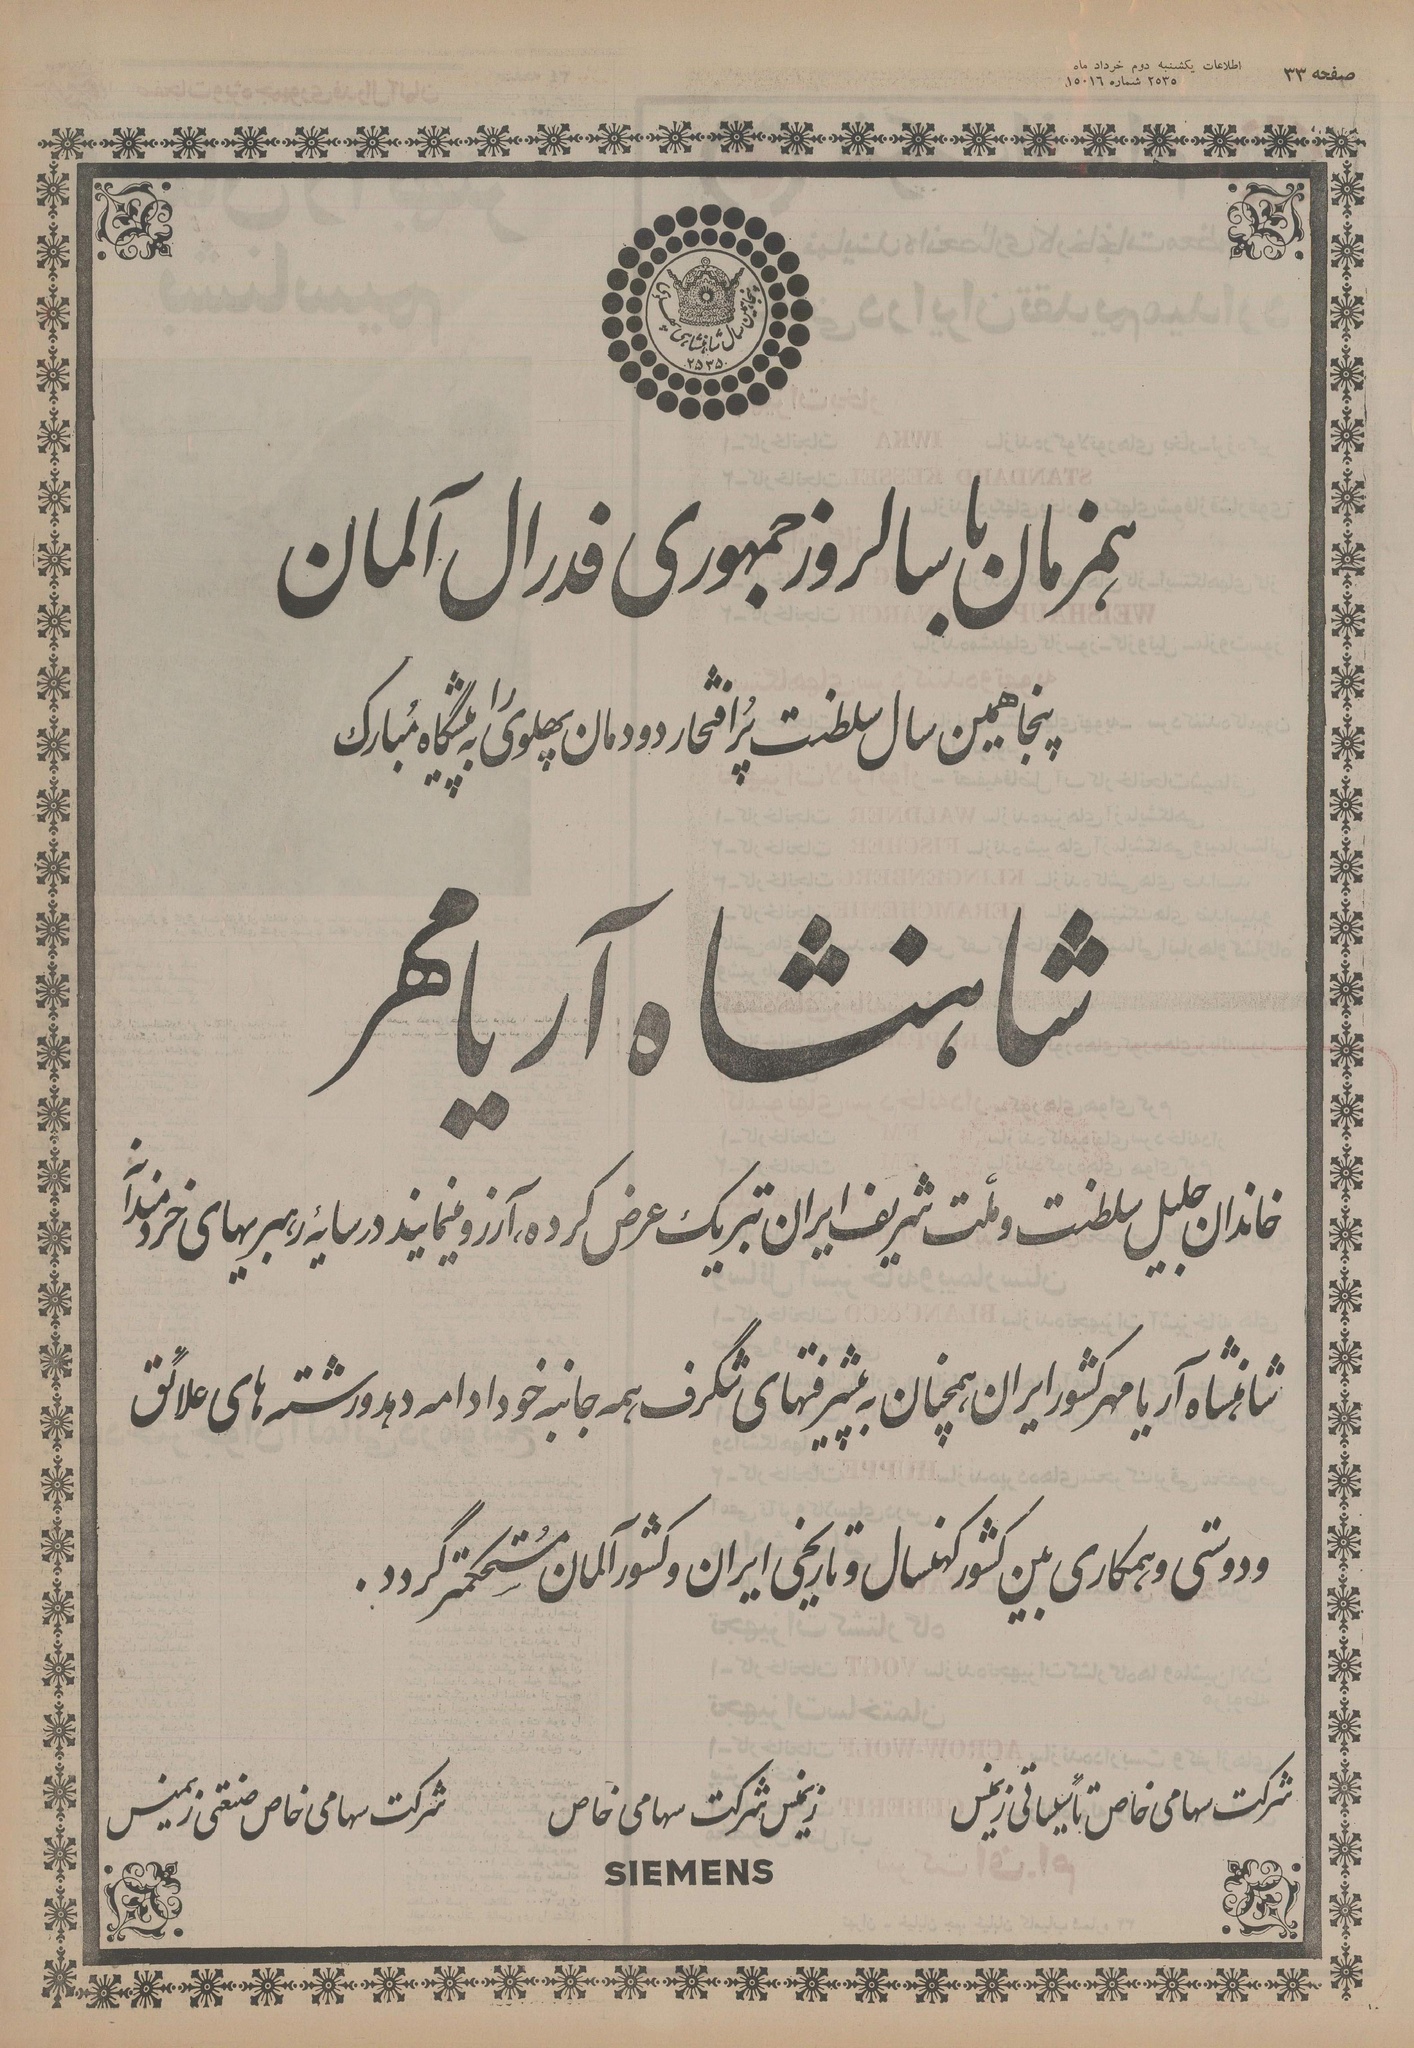 صفحه ۳۳
اطلاعات یکشنبه دوم خرداد ماه
۲۵۳۵ شماره ۱۵۰۱۶
پنجاهمین سال شاهنشاهی پهلوی
۲۵۳۵
همزمان با سالروز جمهوری فدرال آلمان
پنجاهمین سال سلطنت پُر افتخار دودمان پهلوی را به پیشگاه مُبارک
شاهنشاه آریامهر
خاندان جلیل سلطنت و ملّت شریف ایران تبریک عرض کرده، آرزو مینمایند در سایهٔ رهبریهای خردمندانه
شاهنشاه آریامهر کشور ایران همچنان به پیشرفتهای شگرف همه جانبه خود ادامه دهد و رشته های علائق
و دوستی و همکاری بین کشور کهنسال و تاریخی ایران و کشور آلمان مُستحکمتر گردد.
شرکت سهامی خاص تأسیساتی زیمنس
زیمنس شرکت سهامی خاص
شرکت سهامی خاص صنعتی زیمنس
SIEMENS